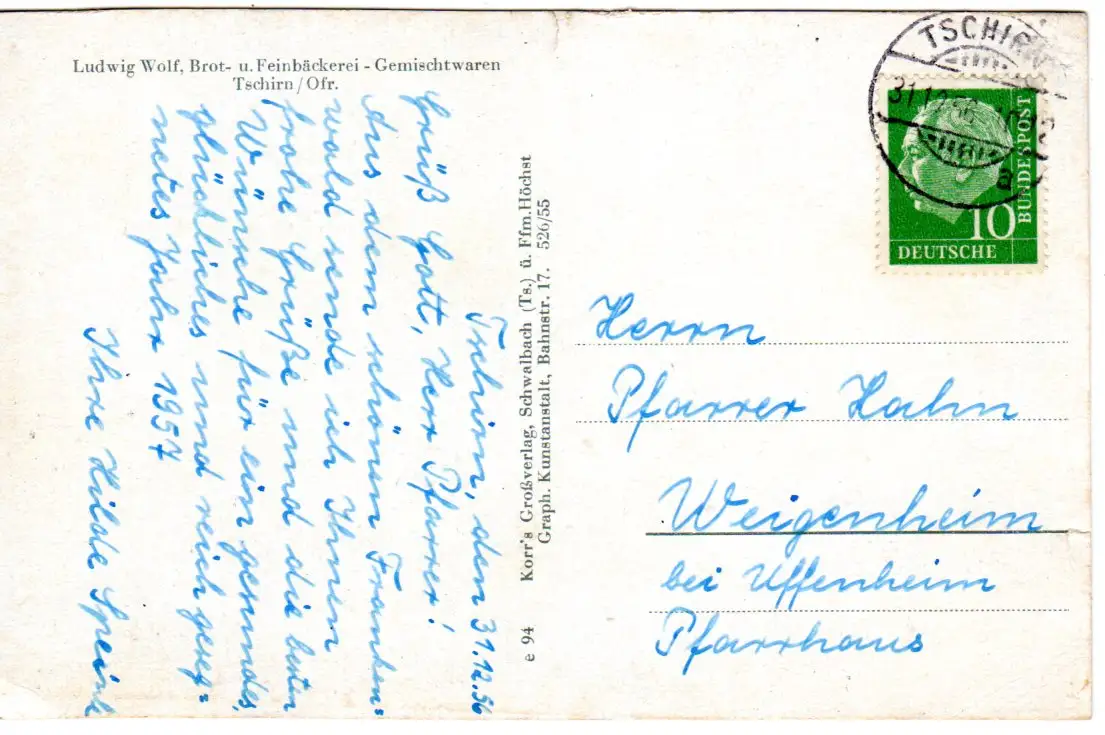 Ludwig Wolf, Brot- u. Feinbäckerei - Gemischtwaren
Tschirn/Ofr.
Tschirn, den 31.12.56
Grüß Gott, Herr Pfarrer!
Aus dem schönen Franken=
wald sende ich Ihnen
frohe Grüße und die besten
Wünsche für ein gesundes,
glückliches und reich geseg=
netes Jahr 1957
Ihre Hilde
e 94 Korr's Großverlag, Schwalbach (Ts.) ü. Ffm.Höchst
Graph. Kunstanstalt, Bahnstr. 17. 526/55
TSCHIRN
31.12.56
a
10
DEUTSCHE
BUNDESPOST
Herrn
Pfarrer Hahn
Weigenheim
bei Uffenheim
Pfarrhaus